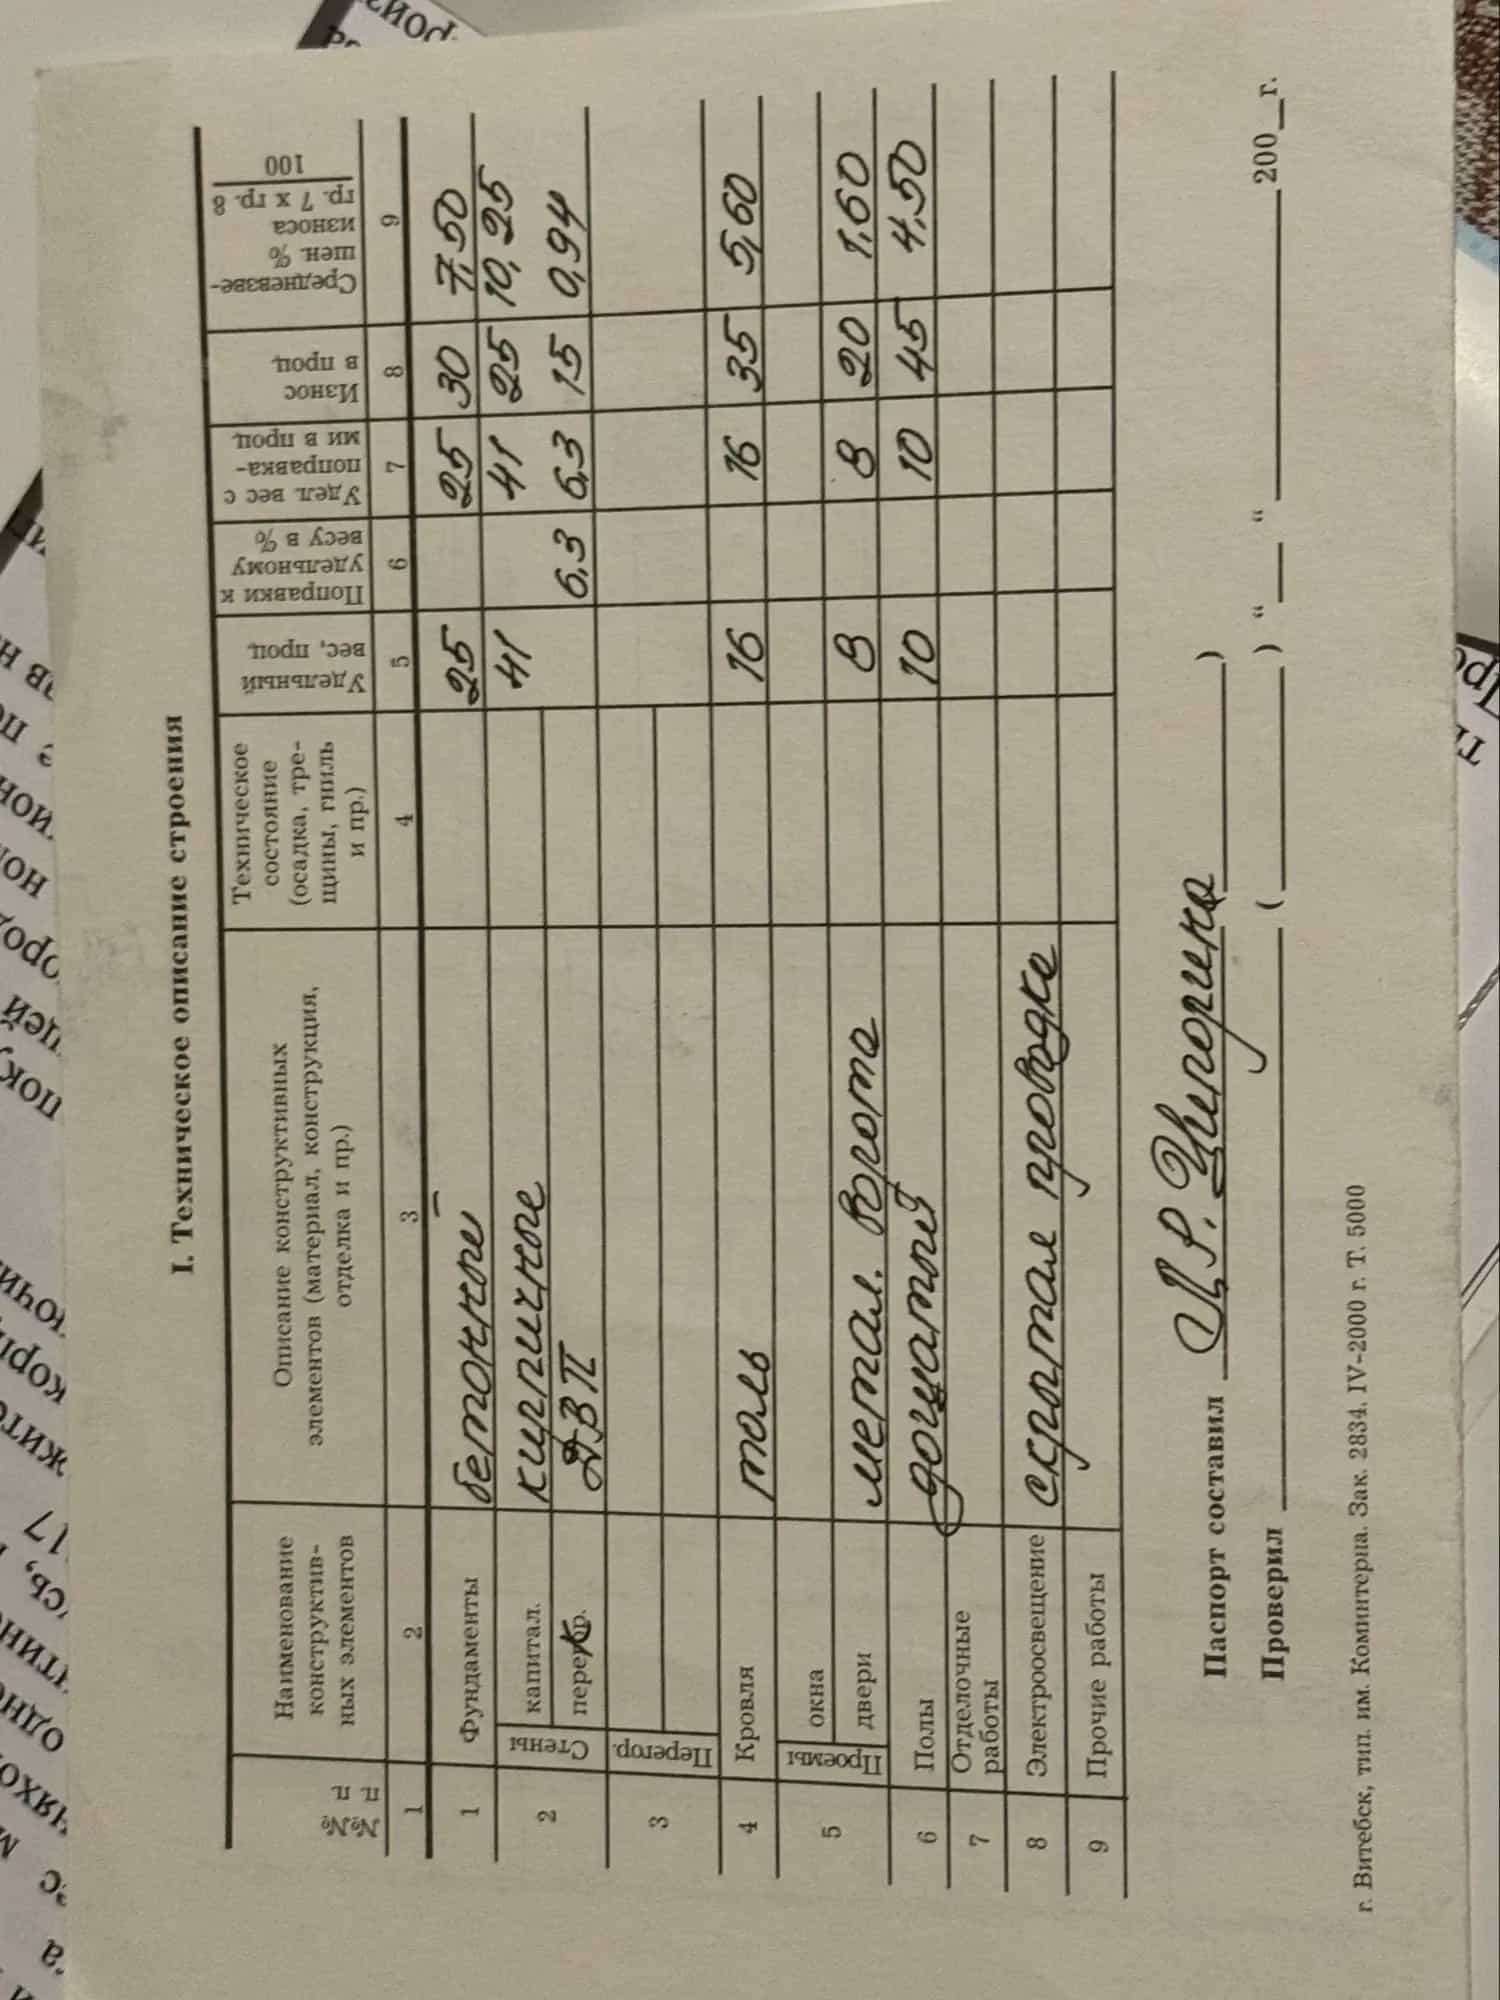 I. Техническое описание строения
№№ п. п. | Наименование конструктив- ных элементов | Описание конструктивных элементов (материал, конструкция, отделка и пр.) | Техническое состояние (осадка, тре- щины, гниль и пр.) | Удельный вес, проц. | Поправки к удельному весу в % | Удел. вес с поправка- ми в проц. | Износ в проц. | Средневзве- шен. % износа гр. 7 х гр. 8 100
1 | 2 | 3 | 4 | 5 | 6 | 7 | 8 | 9
1 | Фундаменты | бетонный | 25 | 25 | 30 | 7,50
2 | Стены | капитал. | кирпичные | 41 | 41 | 25 | 10,25
ДВП | 6,3 | 6,3 | 15 | 0,94
3 | Перегор.
4 | Кровля | толь | 16 | 16 | 35 | 5,60
5 | Проемы | окна
двери | метал. ворота | 8 | 8 | 20 | 1,60
6 | Полы | дощатый | 10 | 10 | 45 | 4,50
7 | Отделочные работы
8 | Электроосвещение | скрытая проводка
9 | Прочие работы
Паспорт составил )
Проверил ( ) “ “ 200 г.
г. Витебск, тип. им. Коминтерна. Зак. 2834. IV-2000 г. Т. 5000